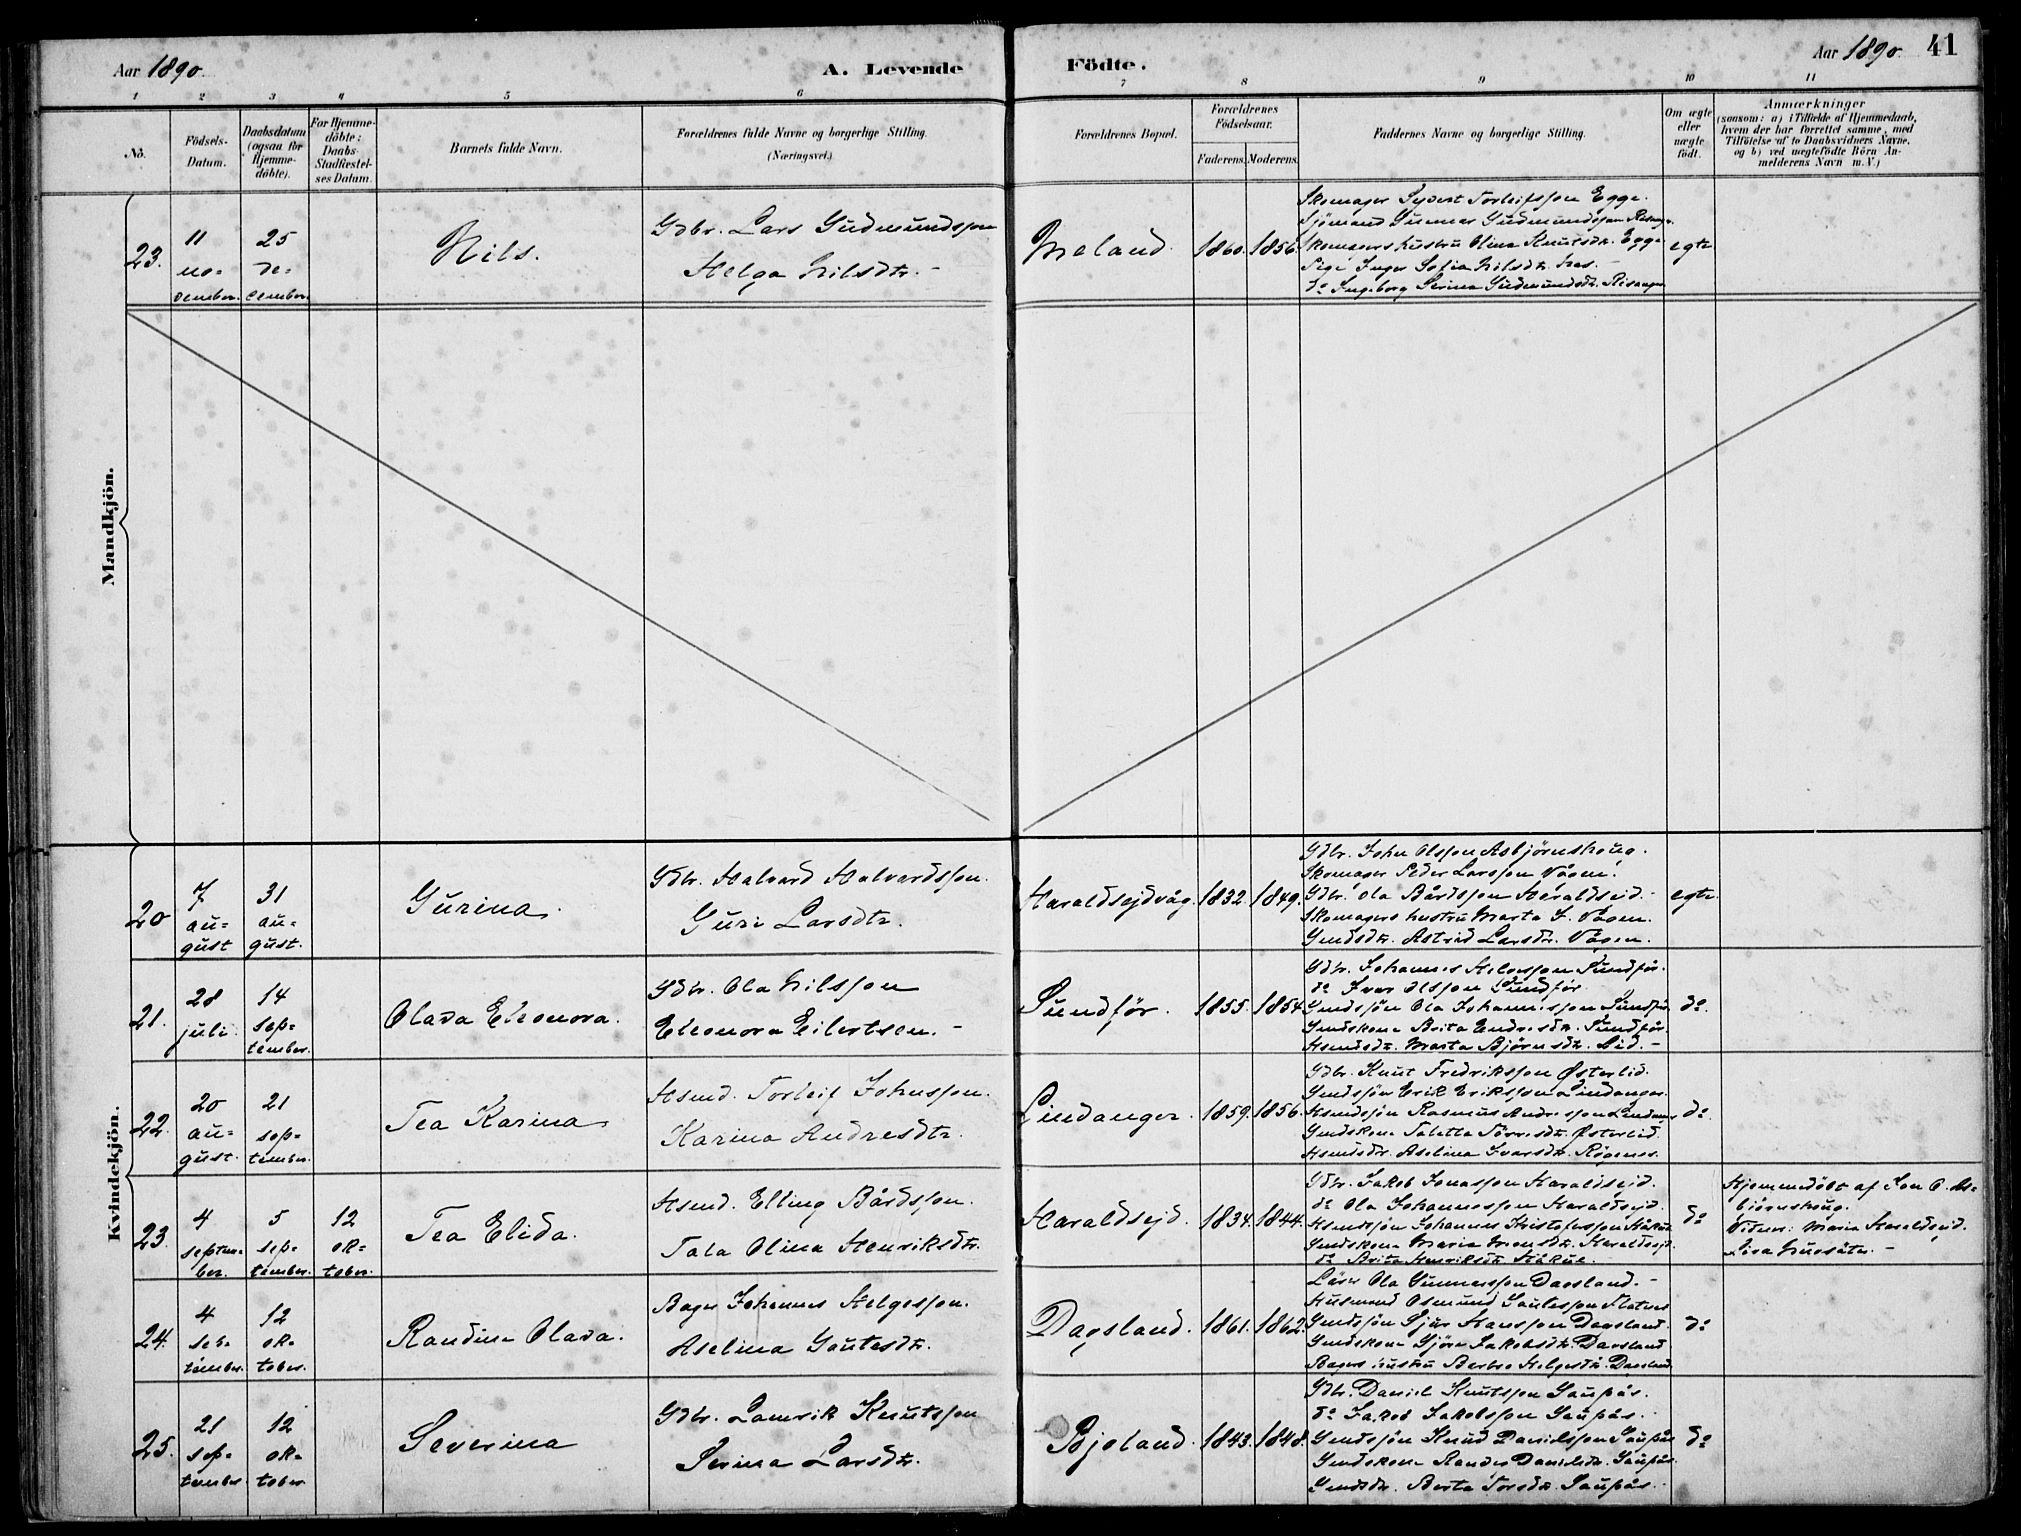 Aar 1890. A. Levende Födte. Aar 1890. 41
1 2 3 4 5 6 7 8 9 10 11
No.
Födsels-
Datum.
Daabsdatum
(ogsaa for
Hjemme-
döbte).
For Hjemme-
döbte:
Daabs-
Stadfæstel-
ses Datum.
Barnets fulde Navn.
Forældrenes fulde Navne og borgerlige Stilling.
(Næringsvei.)
Forældrenes Bopæl.
Forældrenes
Födselsaar.
Faderens. Moderens.
Faddernes Navne og borgerlige Stilling.
Om ægte
eller
uægte
født.
Anmærkninger
(saasom: a) i Tilfælde af Hjemmedaab,
hvem der har forrettet samme, med
Tilföielse af to Daabsvidners Navne,
og b) ved uægtefödte Börn An-
melderens Navn m.V.)
Mandkjön.
23.
11
no-
vember.
25
de-
cember.
Nils.
Gdbr. Lars Gudmundsson
Helga Nilsdtr. -
Meland. 1860. 1856.
Skomager Sjovert Torleifsson Egge.
Sjömand Gunnar Gudmundsson
Skomagers hustru Olina Knutsdtr. Egge
Pige Inger Sofia Nilsdtr. Nes. -
do Ingeborg Serina Gudmundsdtr. Risanger
egte
Kvindekjön.
20
7
au-
gust
31
au-
gust.
Gurina.
Gdbr. Halvard Halvardsson.
Guri Larsdtr.
Haraldsejdvåg. 1832. 1849.
Gdbr. John Olsson Asbjørnshoug.
Skomager Peder Larsson Vågen.
Gdbr. Ola Bårdsson Haraldseid. -
Skomagers hustru Marta J. Vågen.
Gmdsdtr. Astrid Larsdtr. Vågen.
egte.
21.
28
juli.
14
sep-
tember.
Olava Eleonora.
Gdbr. Ola Nilsson
Eleonora Eilertsen. -
Sundför. 1855. 1854.
Gdbr. Johannes Helgesson Sundför.
do Ivar Olsson Sundför
Gmdssön Ola Johannesson Sundför
Gmdskone Brita Endresdtr. Sundför.
Hsmdsdtr. Marta Björnsdtr. Eid. -
do.
22.
20
au-
gust.
21
sep-
tember.
Tea Karina
Hsmd. Torleif Johnsson.
Karina Andresdtr.
Lindanger. 1859. 1856.
Gdbr. Knut Fredriksson Østerlid.
Gmdssjön Erik Eriksson Lindanger.
Hsmdssjön Rasmus Andresson Lindang
Gmdskone Taletta Tørresdtr. Østerlid.
Hsmdsdtr. Aselina Ivarsdtr. Røgenes.
do.
23.
4
septem-
ber.
5
sep-
tember.
12
ok-
tober.
Tea Elida.
Hsmd. Elling Bårdsson.
Tala Olina Henriksdtr.
Haraldsejd. 1834. 1844.
Gdbr. Jakob Jonasson Haraldseid.
do Ola Johannesson Haraldsejd.
Hsmdssjön Johannes Kristofersson Håkul
Gmdskone Maria Monsdtr. Haraldsejd
do Brita Henriksdtr. Håkul.
do
Hjemmedöbt af Jon O. As-
björnshoug.
Vidner: Maria Haraldsejd.
24.
4
sep-
tember.
12
ok-
tober.
Randine Olava.
Bager Johannes Helgesson.
Aselina Gautesdtr.
Dagsland. 1861. 1862.
Lärer Ola Gunnarsson Dagsland. -
Husmand Osmund Gautesson Flatnes
Gmdssjön Sjur Hansson Dagsland.
Gmdskone Gjöre Jakobsdtr. Dagsland
Bagers hustru Barbro Helgesdtr. Dagsland.
do
25.
21
sep-
tember
12
ok-
tober
Severina
Gdbr. Lamrik Knutsson
Serina Larsdtr.
Bjoland. 1843. 1848.
Gdbr. Daniel Knutsson Saupås.
do Jakob Jakobsson Saupås.
Gmdssjön Knud Danielsson Saupås
Gmdskone Randei Danielsdtr. Saupås.
Gmdsdtr. Berta Torsdtr. Saupås.
do